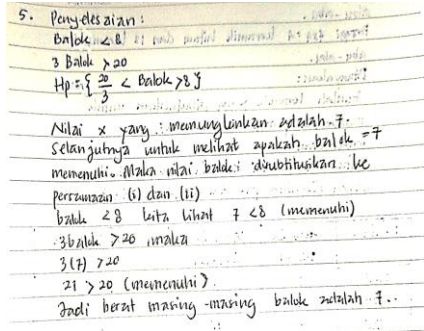 5. Penyelesaian :
Balok < 8
3 Balok > 20
Hp = { 20/3 < Balok > 8 }
Nilai x yang memungkinkan adalah 7.
Selanjutnya untuk melihat apakah balok = 7
memenuhi. Maka nilai balok disubtitusikan ke
persamaan (i) dan (ii)
balok < 8 kita lihat 7 < 8 (memenuhi)
3 balok > 20 maka
3(7) > 20
21 > 20 (memenuhi).
Jadi berat masing-masing balok adalah 7.